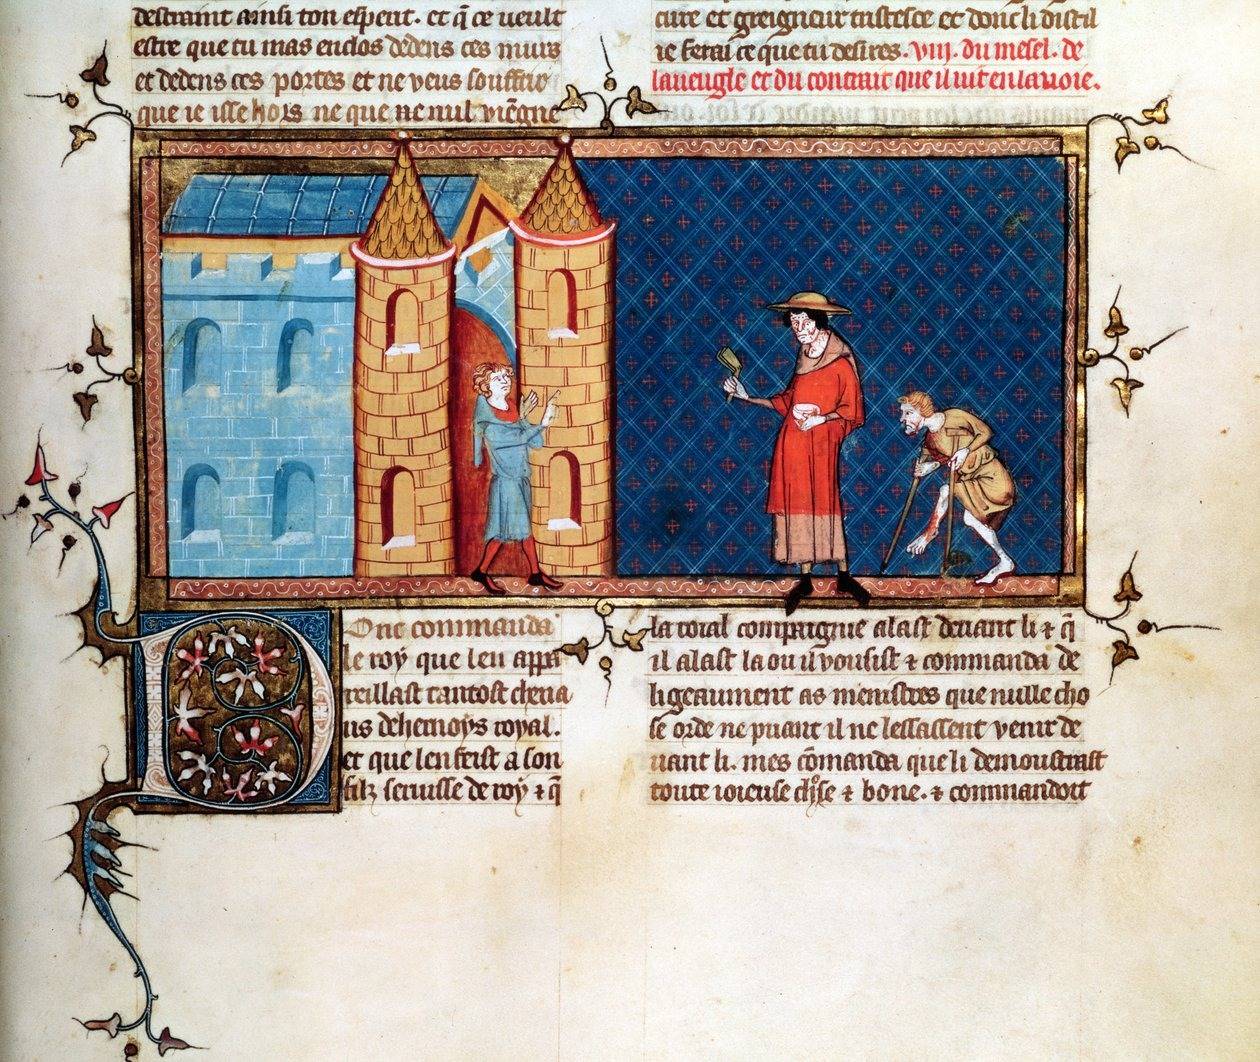 destraint ainsi ton esperit. et q̃ ce ueult
estre que tu mas enclos dedens ces murs
et dedens ces portes et ne veus souffrir
que ie isse hors ne que ne nul viẽgne
cure et greigneur tristesce et donc li dist il
ie ferai ce que tu desires. viij. du mesel. de
laueugle et du contrait que il vit en la voie.
Donc commanda
le roy que len appa
reillast tantost cheua
us dehernoys royal.
et que len feist a son
filz seruisse de roy ⁊ q̃
la roial compaignie alast deuant li ⁊ q̃
il alast la ou il vousist ⁊ commanda de
ligeaument as menistres que nulle cho
se orde ne puant il ne lessassent venir de
uant li. mes cõmanda que li demoustrast
toute ioieuse chose ⁊ bone. ⁊ commandoit